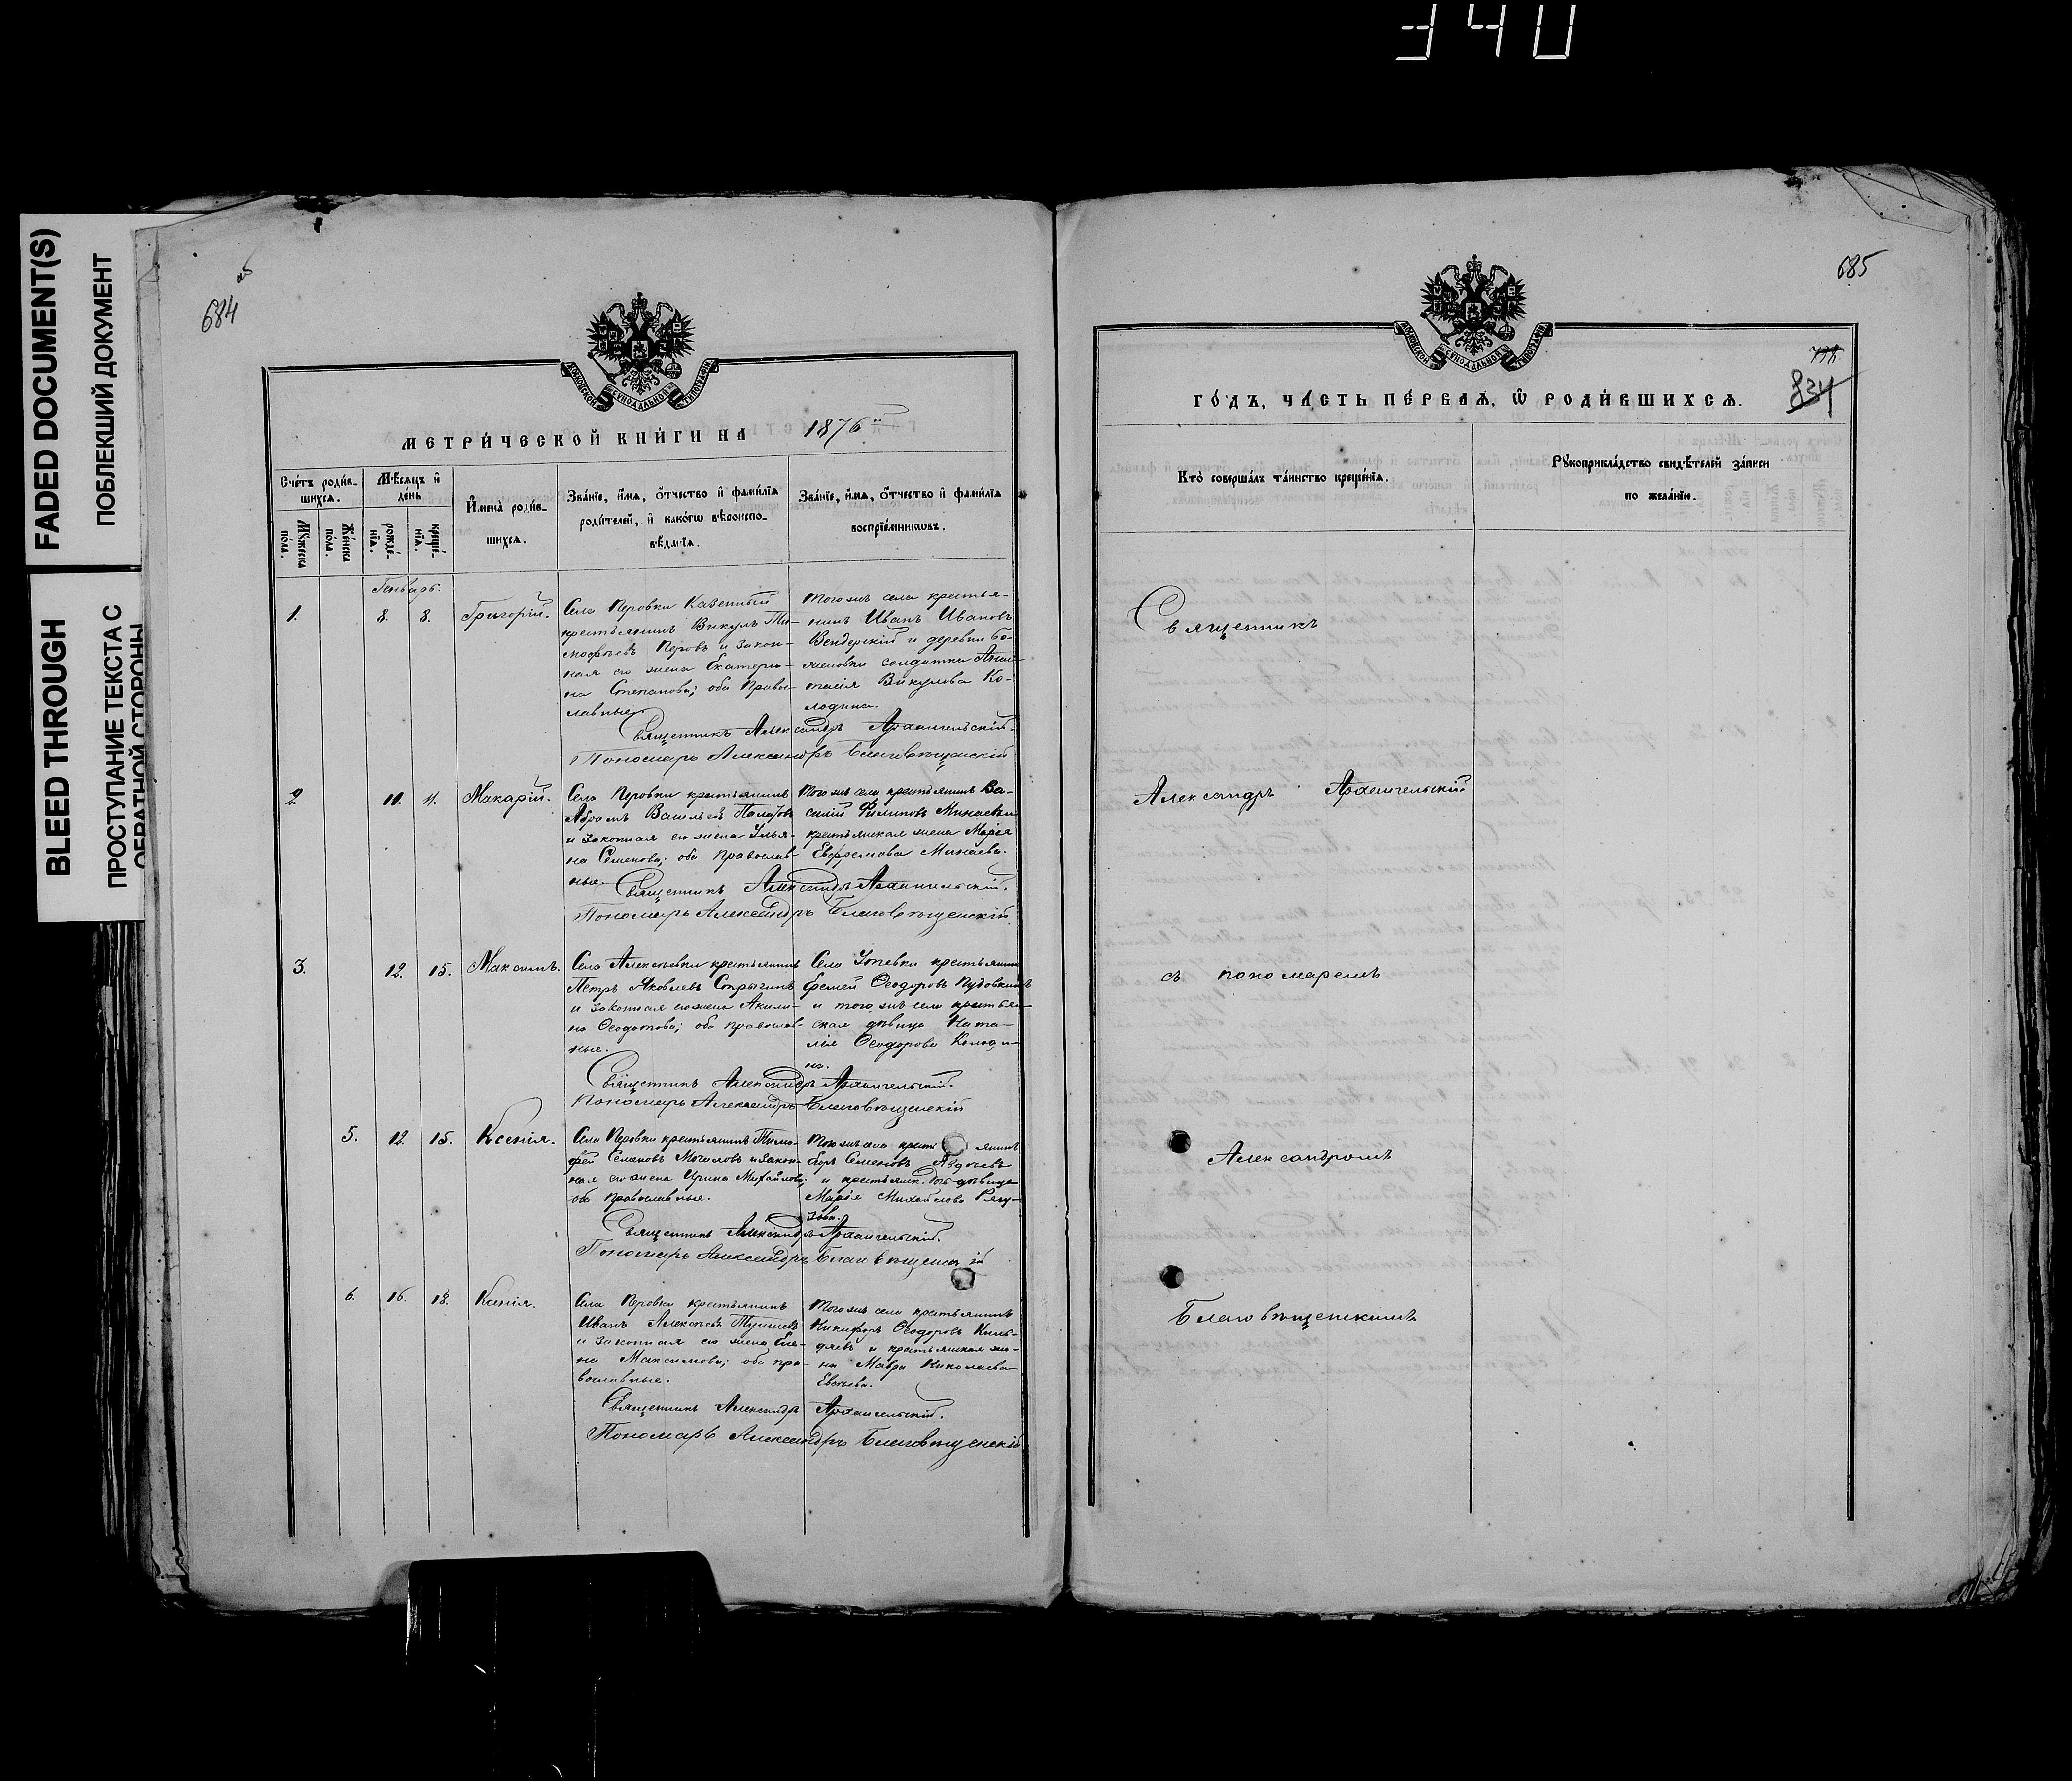 340
FADED DOCUMENT(S)
ПОБЛЕКШИЙ ДОКУМЕНТ
BLEED THROUGH
ПРОСТУПАНИЕ ТЕКСТА С
ОБРАТНОЙ СТОРОНЫ
684
МОСКОВСКОЙ СѴНОДАЛЬНОЙ ТИПОГРАФІИ
МЕТРИ́ЧЕСКОЙ КНИ́ГИ НА 1876й
Сче́тъ роди́в-
шихсѧ.
Мꙋ́жеска
по́ла.
Же́нска
по́ла.
Мѣ́сѧцъ и҆
де́нь
рожде́-
нїѧ.
креще́-
нїѧ.
И҆мена̀ роди́в-
шихсѧ.
Зва́нїе, и҆́мѧ, ѻ҆́тчество и҆ фами́лїѧ
роди́телей, и҆ како́гѡ вѣроиспо-
вѣ́данїѧ.
Зва́нїе, и҆́мѧ, ѻ҆́тчество и҆ фами́лїѧ
воспрїе́мникѡвъ.
Генварь.
1. 8. 8. Григорій.
Села Перовки Казенный
крестьянинъ Викулъ Ти-
мофеевъ Перовъ и закон-
ная его жена Екатери-
на Степанова; оба право-
славные.
Того же села крестья-
нинъ Иванъ Ивановъ
и деревни
солдатка
Викулова Ко-
лодина.
Священникъ Александръ Архангельскій.
Пономарь Александръ Благовѣщенскій
2. 11. 11. Макарій.
Села Перовки крестьянинъ
Абрамъ Васильевъ
и законная его жена Улья-
на Семенова; оба православ-
ные.
Того же села крестьянинъ Ва-
силій Филиповъ Минаевъ и
крестьянская жена Марія
Евфремова Минаева.
Священникъ Александръ Архангельскій.
Пономарь Александръ Благовѣщенскій
3. 12. 15. Максимъ.
Села Алексѣевки крестьянинъ
Петръ Яковлевъ
и законная его жена Акили-
на Ѳеодотова; оба православ-
ные.
Села Утевки крестьянинъ
Ѳеодоровъ
и того же села крестьян-
ская дѣвица Ната-
лія Ѳеодорова Колоди-
на.
Священникъ Александръ Архангельскій.
Пономарь Александръ Благовѣщенскій
5. 12. 15. Ксенія.
Села Перовки крестьянинъ Тимо-
фей Семеновъ и закон-
ная его жена Ирина Михайлова;
оба православные.
Того же села крестьянинъ
Семеновъ
и крестьянск. дѣвица
Марія Михайлова
Священникъ Александръ Архангельскій.
Пономарь Александръ Благовѣщенскій
6. 16. 18. Ксенія.
Села Перовки крестьянинъ
Иванъ Алексѣевъ
и законная его жена Еле-
на Максимова; оба пра-
вославные.
Того же села крестьянинъ
Никифоръ Ѳеодоровъ
и крестьянская же-
на Мавра Николаева
Священникъ Александръ Архангельскій.
Пономарь Александръ Благовѣщенскій
685
МОСКОВСКОЙ СѴНОДАЛЬНОЙ ТИПОГРАФІИ
834
ГО́ДЪ, ЧА́СТЬ ПЕ́РВАѦ, Ѡ҆ РОДИ́ВШИХСѦ.
Кто̀ соверша́лъ та́инство креще́нїѧ.
Рꙋкоприкла́дство свидѣ́телей за́писи
по жела́нїю.
Священникъ
Александръ Архангельскій
съ пономаремъ
Александромъ
Благовѣщенскимъ